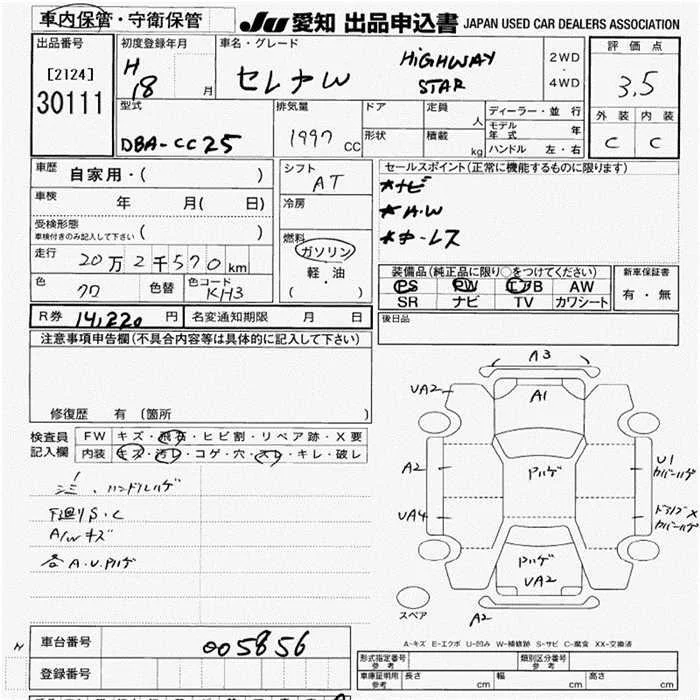 車内保管・守衛保管
JU 愛知 出品申込書 JAPAN USED CAR DEALERS ASSOCIATION
出品番号
[2124]
30111
初度登録年月
H
18 月
車名・グレード
セレナW
HiGHWAY
STAR
2WD
・
4WD
評価点
3.5
外装 内装
C C
型式
DBA-CC25
排気量
1997 CC
ドア
形状
定員 人
積載 kg
ディーラー・並行
モデル年式 年
ハンドル 左・右
車歴
自家用・( )
車検
年 月( 日)
受検形態
車検付きのみ記入して下さい ( )
走行
20万2千570km
色
クロ
色替
色コード
KH3
シフト
AT
冷房
燃料
ガソリン
軽・油
( )
セールスポイント(正常に機能するものに限ります)
★ナビ
★A.W
★キーレス
装備品(純正品に限り○をつけてください)
PS PW エアB AW
SR ナビ TV カワシート
新車保証書
有・無
後日品
R券 14,220 円
名変通知期限 月 日
注意事項申告欄(不具合内容等は具体的に記入して下さい)
修復歴 有 (箇所 )
検査員
記入欄
FW キズ・飛石・ヒビ割・リペア跡・X要
内装 キズ・汚レ・コゲ・穴・スレ・キレ・破レ
ハンドルハゲ
下廻りS.C
A/Wキズ
各A.U.Pハゲ
A3
UA2
A1
A2
Pハゲ
U1
カバーハゲ
UA4
ドアノブX
カバーハゲ
Pハゲ
UA2
スペア
A2
A-キズ E-エクボ U-凹み W-補修跡 S-サビ C-腐食 XX-交換済
車台番号
005856
登録番号
型式指定番号
参考
類別区分番号
参考
車庫証明用
参考
長さ cm
幅 cm
高さ cm